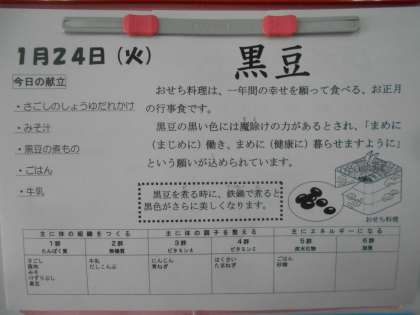 1月24日（火）
黒豆
今日の献立
・さごしのしょうゆだれかけ
・みそ汁
・黒豆の煮もの
・ごはん
・牛乳
おせち料理は、一年間の幸せを願って食べる、お正月
の行事食です。
黒豆の黒い色には魔除けの力があるとされ、「まめに
（まじめに）働き、まめに（健康に）暮らせますように」
という願いが込められています。
黒豆を煮る時に、鉄鍋で煮ると
黒色がさらに美しくなります。
おせち料理
主に体の組織をつくる 主に体の調子を整える 主にエネルギーになる
1群 2群 3群 4群 5群 6群
たんぱく質 無機質 ビタミンA ビタミンC 炭水化物 脂肪
さごし 牛乳 にんじん はくさい ごはん
だしこんぶ 青ねぎ たまねぎ 砂糖
みそ
けずりぶし
黒豆